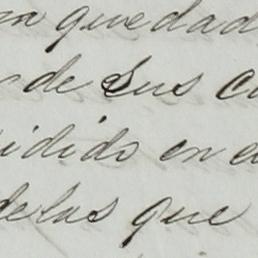 quedad
de sus co
idido en e
de las que